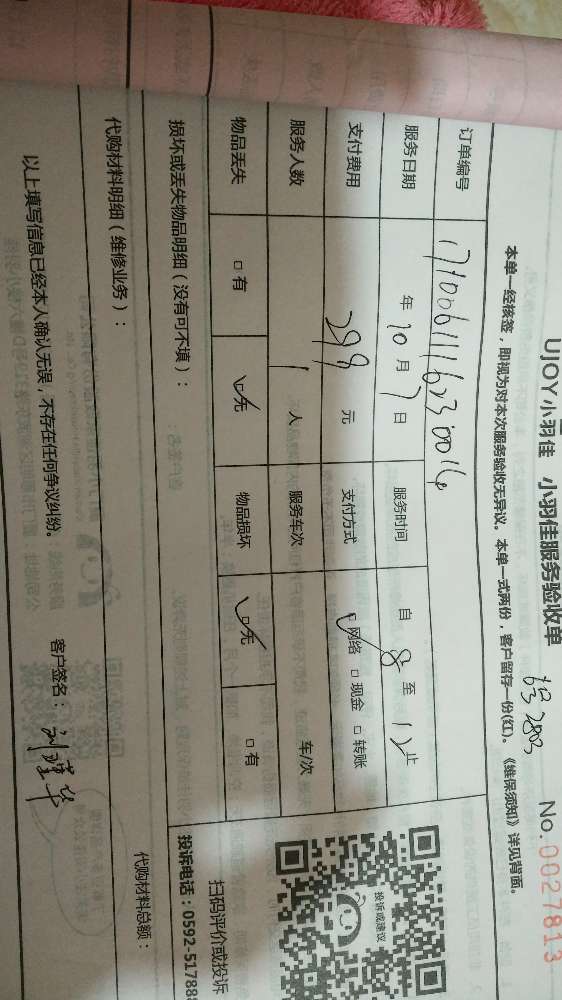 UJOY小羽佳 小羽佳服务验收单
No.0027813
本单一经核签，即视为对本次服务验收无异议。本单一式两份，客户留存一份(红)。《维保须知》详见背面。
订单编号
服务日期 年 10 月 7 日 服务时间 自 8 至 12 止
支付费用 299 元 支付方式 ☑网络 □现金 □转账
服务人数 1 人 服务车次 车/次
物品丢失 □有 ☑无 物品损坏 ☑无 □有
投诉或建议
扫码评价或投诉
投诉电话：0592-517888
损坏或丢失物品明细（没有可不填）：
代购材料明细（维修业务）：
代购材料总额：
以上填写信息已经本人确认无误，不存在任何争议纠纷。
客户签名：